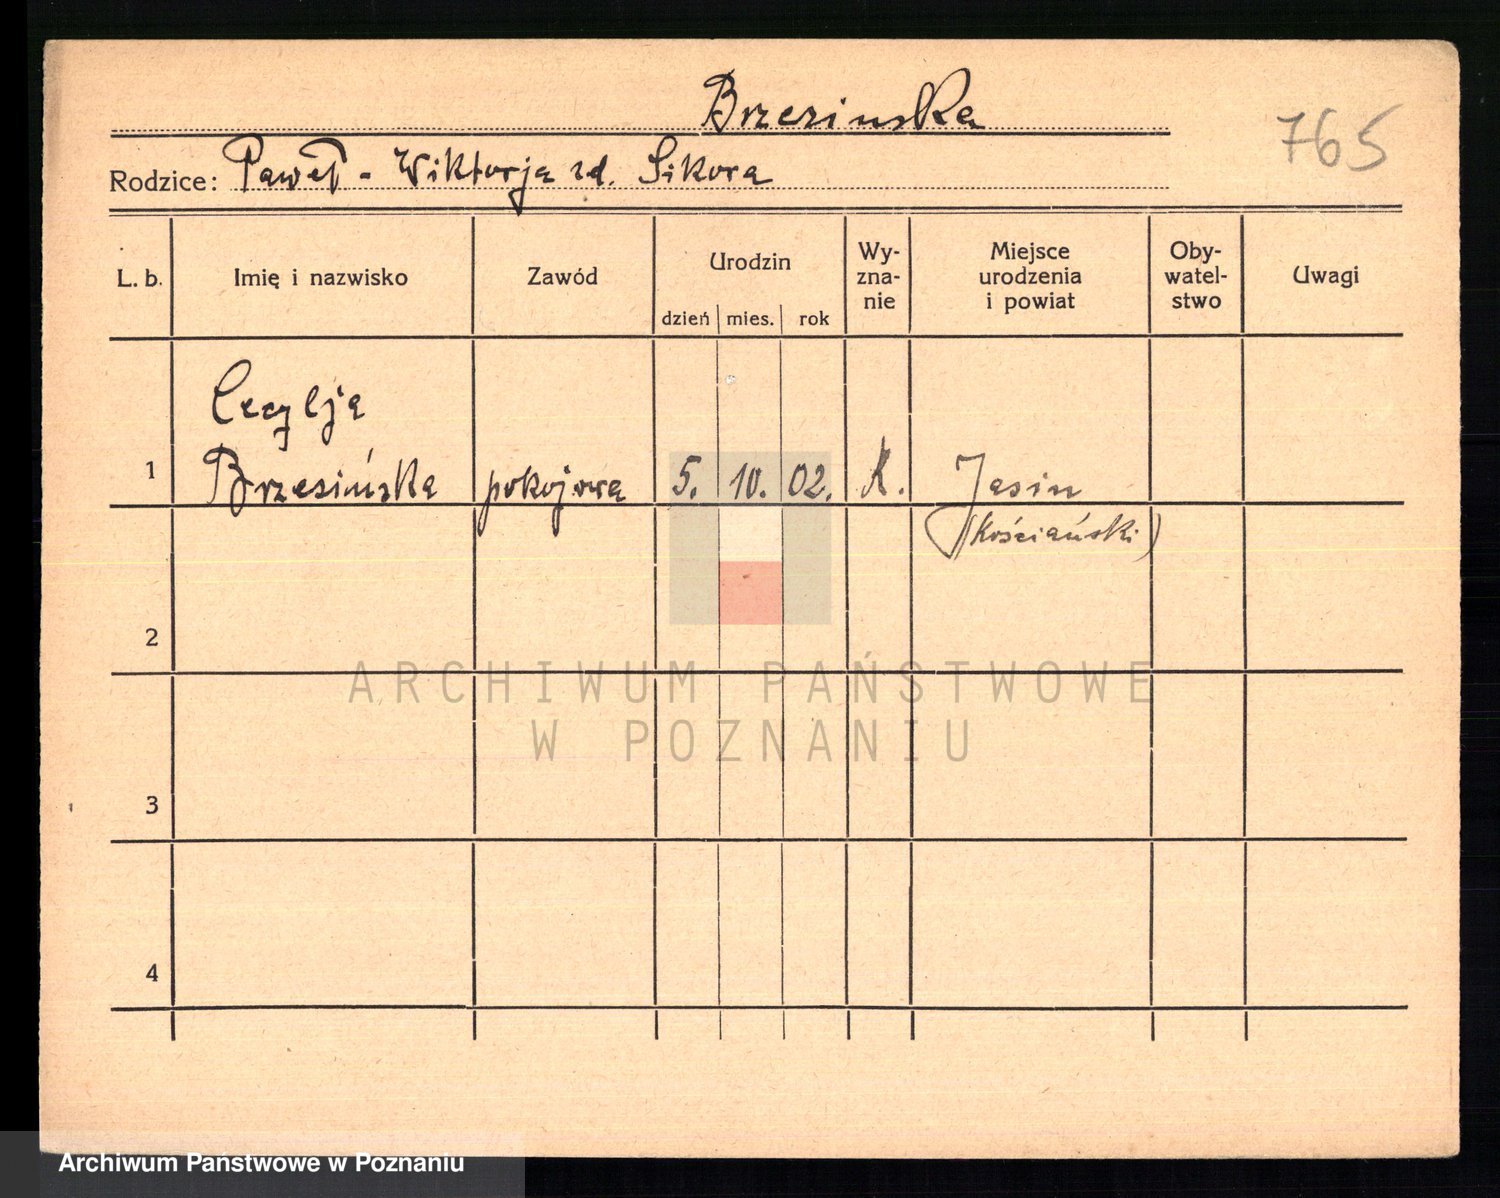 Brzezinska
765
Rodzice: Paweł - Wiktorja zd. Sikora
L. b.
Imię i nazwisko
Zawód
Urodzin
dzień mies. rok
Wy-
zna-
nie
Miejsce
urodzenia
i powiat
Oby-
watel-
stwo
Uwagi
Cecylja
1 Brzezińska pokojowa 5. 10. 02. K. Jasin
(Kościański)
2
ARCHIWUM PAŃSTWOWE
W POZNANIU
3
4
Archiwum Państwowe w Poznaniu